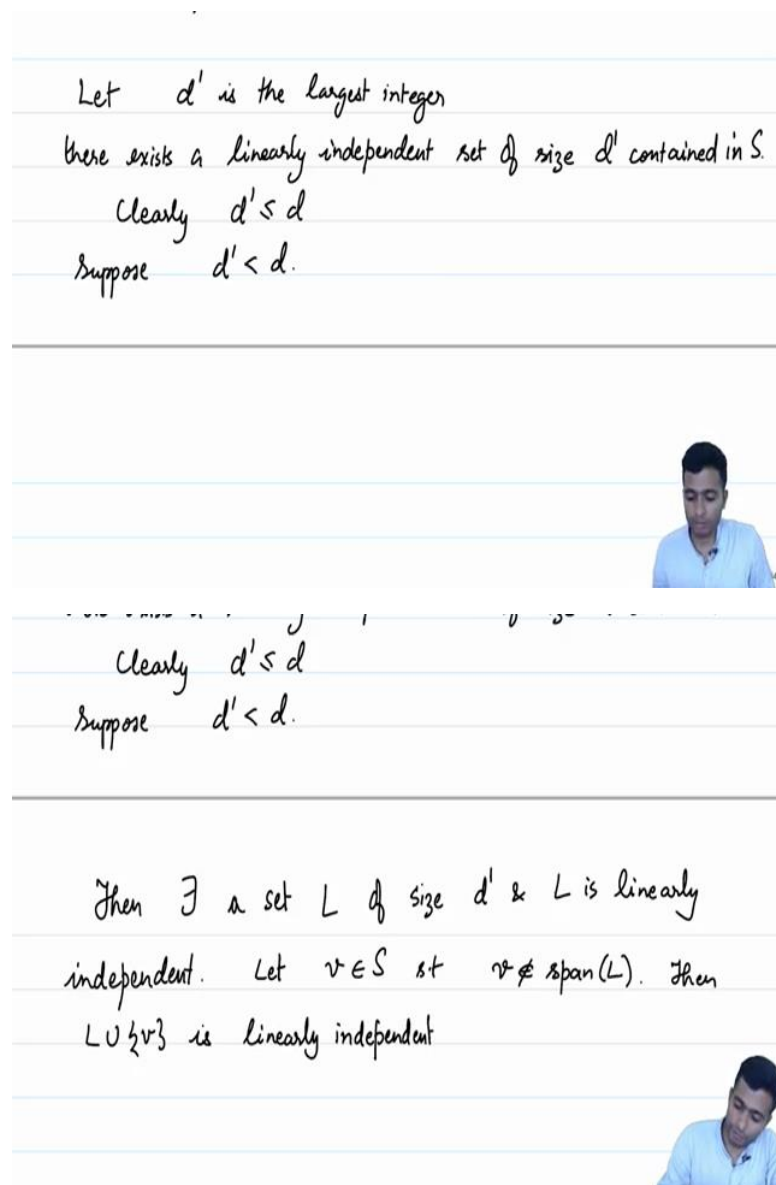 Let d' is the largest integer
there exists a linearly independent set of size d' contained in S.
Clearly d' ≤ d
Suppose d' < d.
Clearly d' ≤ d
Suppose d' < d.
Then ∃ a set L of size d' & L is linearly
independent. Let v ∈ S st v ∉ span(L). Then
L ∪ {v} is linearly independent